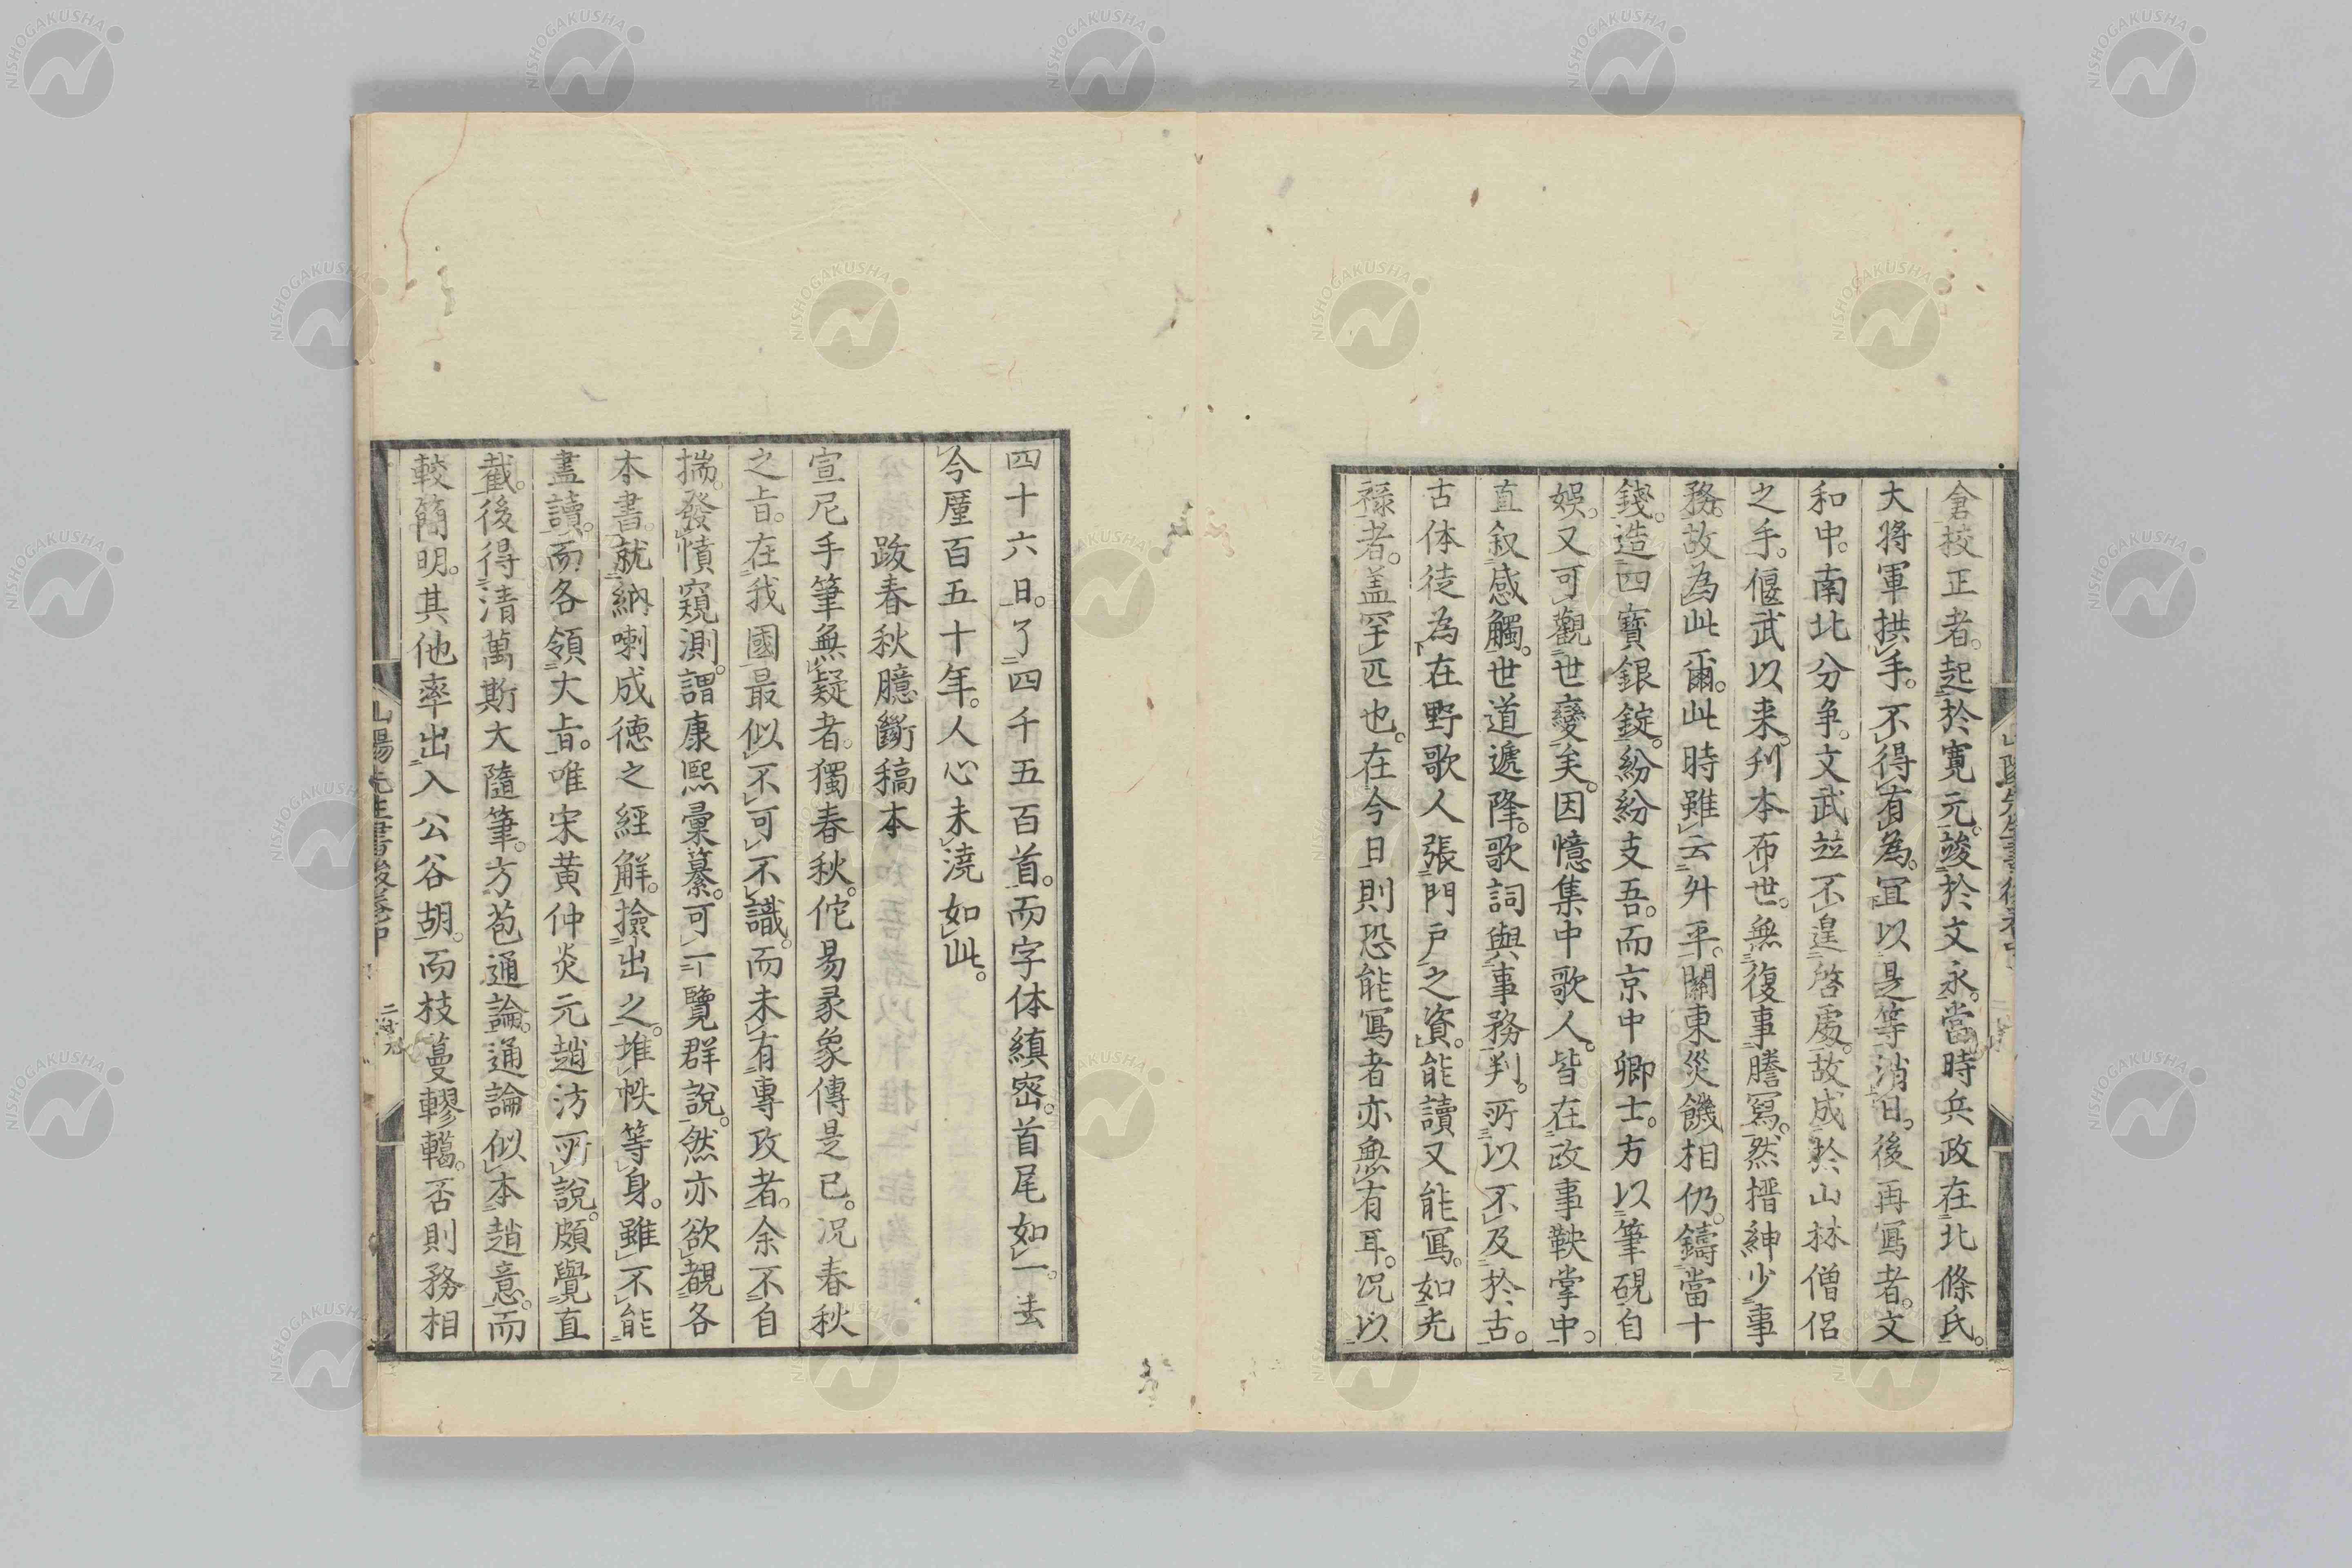 倉校正者。起於寛元。竣於文永。當時兵政在北條氏。
大將軍拱手。不得有為。冝以是等消日。後再寫者。文
和中。南北分争。文武並不遑啓處。故成於山林僧侶
之手。偃武以来。刋本布世。無復事謄寫。然搢紳少事
務。故為此爾。此時雖云升平。關東災饑相仍。鑄當十
錢。造四寳銀錠。紛紛支吾。而京中卿士。方以筆硯自
娯。又可觀世變矣。因憶集中歌人。皆在政事鞅掌中。
直叙感觸。世道遞降。歌詞與事務判。所以不及於古。
古体徒為在野歌人張門戸之資。能讀又能寫。如光
禄者。盖罕匹也。在今日則恐能寫者亦無有耳。況以
四十六日。了四千五百首。而字体縝密。首尾如一。去
今厪百五十年。人心未澆如此。
跋春秋臆斷稿本
宣尼手筆無疑者。獨春秋。佗易彖象傳是已。況春秋
之旨。在我國最似不可不識。而未有專攻者。余不自
揣。發憤窺測。謂康熙彙纂。可一覽群說。然亦欲覩各
本書。就納喇成德之經解。撿出之。堆帙等身。雖不能
盡讀。而各領大旨。唯宋黄仲炎元趙汸所說。頗覺直
截。後得清萬斯大隨筆。方苞通論。通論似本趙意。而
較簡明。其他率出入公谷胡。而枝蔓轇轕。否則務相
NISHOGAKUSHA